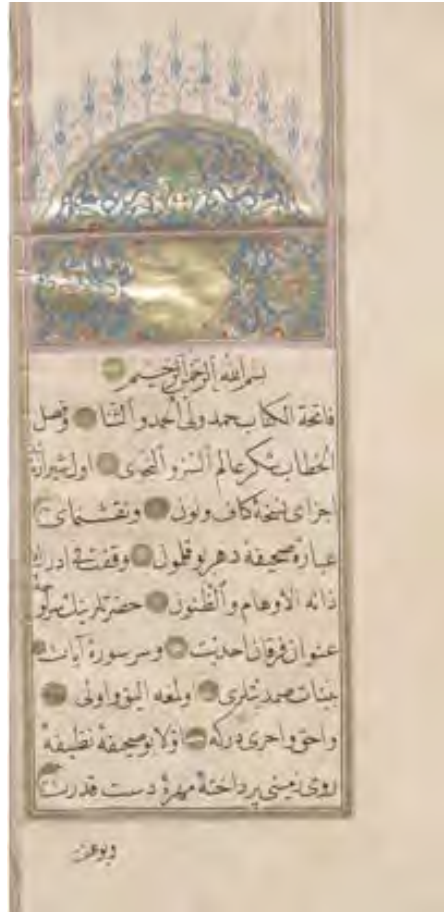 بسم الله الرحمن الرحيم
فاتحة الكتاب حمد ولى الحمد والثنا وفصل
الخطاب شكر عالم السر والنجوى اول شيرازه
اجزاى نسخهٔ كاف ونون ونقشنماى
عبارهٔ صحيفهٔ دهر بوقلمون وقفت فى ادراك
ذاته الاوهام والظنون حضرتلرينك
عنوان فرقان احديت وسر سورهٔ آيات
بينات صمديتلرى اولمغه اليق واولى
واحق واحرى دركه اولا بو صحيفهٔ نظيفهٔ
روى زمينى پرداختهٔ مهرهٔ دست قدرت